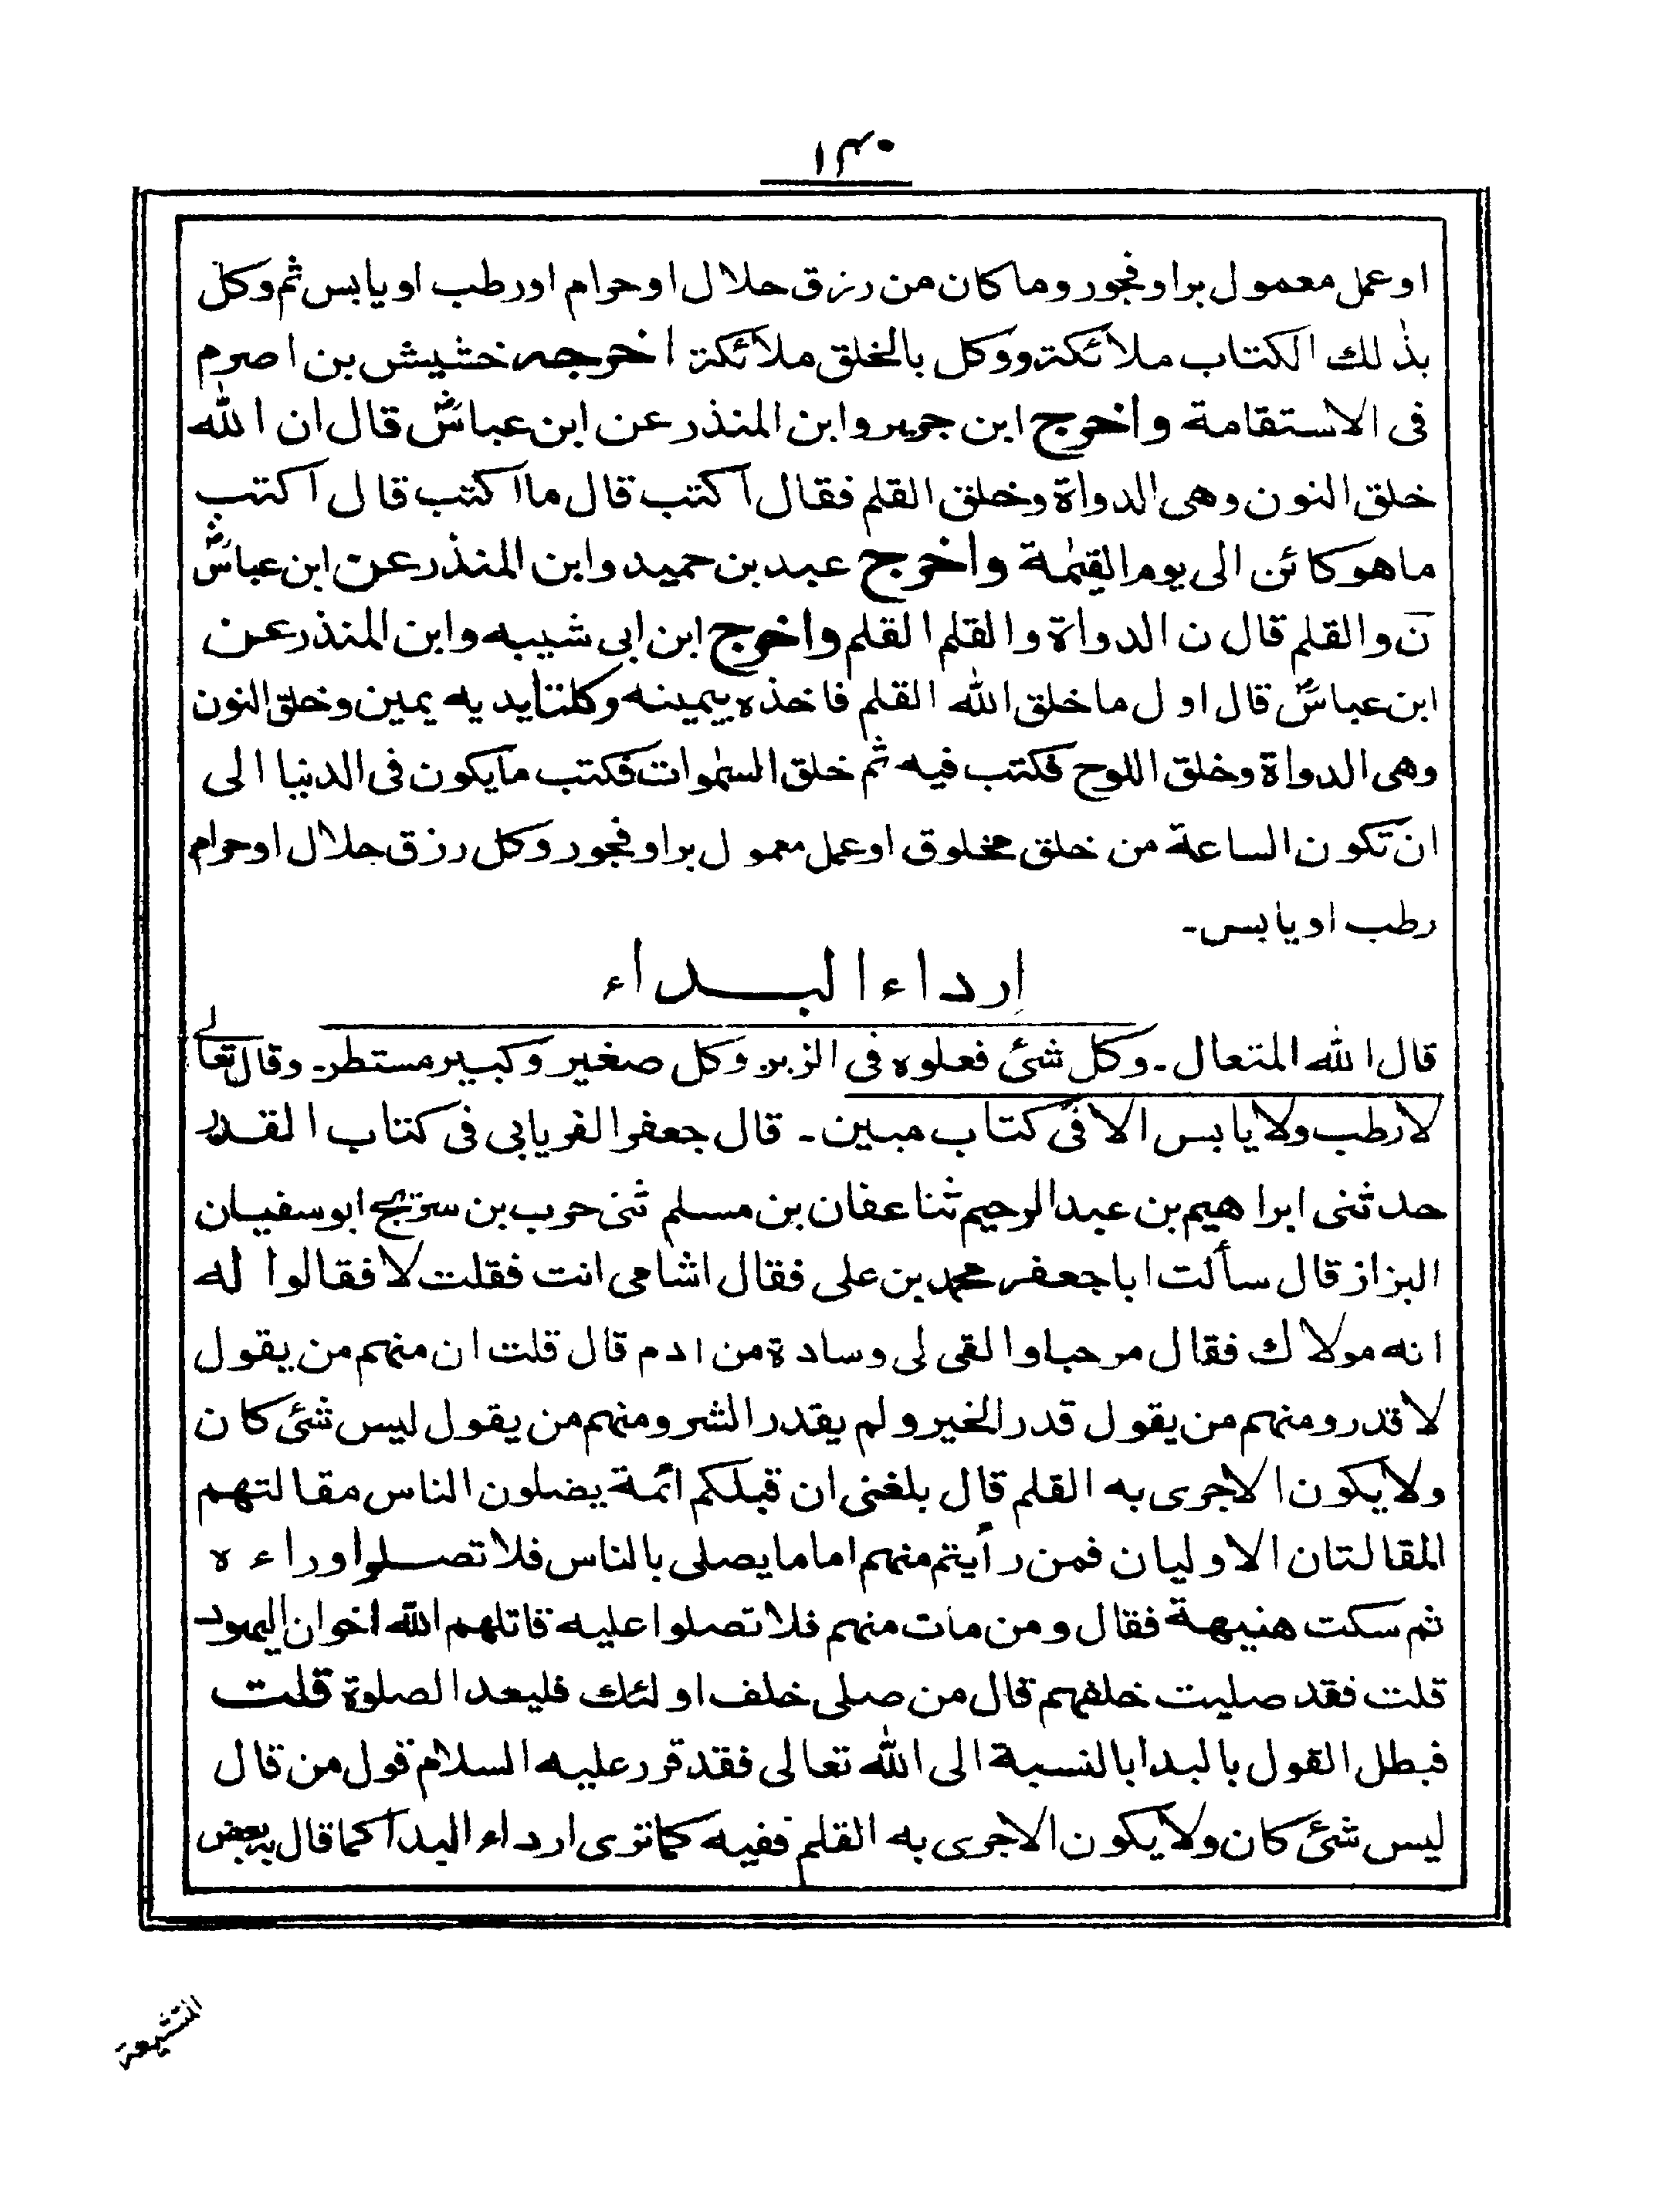 ١٣٠
او عمل معمول بر او فجور وما كان من رزق حلال او حرام او رطب او يابس ثم وكل
بذٰلك الكتاب ملائكة ووكل بالخلق ملائكة اخرجه خشيش بن اصرم
فى الاستقامة واخرج ابن جرير وابن المنذر عن ابن عباسؓ قال ان الله
خلق النون وهى الدواة وخلق القلم فقال اكتب قال ما اكتب قال اكتب
ما هو كائن الى يوم القيٰمة واخرج عبد بن حميد وابن المنذر عن ابن عباسؓ
نٓ والقلم قال ن الدواة والقلم القلم واخرج ابن ابى شيبه وابن المنذر عن
ابن عباسؓ قال اول ما خلق الله القلم فاخذه بيمينه وكلتا يديه يمين وخلق النون
وهى الدواة وخلق اللوح فكتب فيه ثم خلق السمٰوات فكتب ما يكون فى الدنيا الى
ان تكون الساعة من خلق مخلوق او عمل معمول بر او فجور وكل رزق حلال او حرام
رطب او يابس۔
ارداء البداء
قال الله المتعال۔ وكل شئ فعلوه فى الزبر وكل صغير وكبير مستطر۔ وقال تعالے
لا رطب ولا يابس الا فى كتاب مبين۔ قال جعفر الفريابى فى كتاب القدر
حدثنى ابراهيم بن عبد الرحيم ثنا عفان بن مسلم ثنى حرب بن سريج ابو سفيان
البزاز قال سألت ابا جعفر محمد بن على فقال اشامى انت فقلت لا فقالوا له
انه مولاك فقال مرحبا والقى لى وسادة من ادم قال قلت ان منهم من يقول
لا قدر ومنهم من يقول قدر الخير ولم يقدر الشر ومنهم من يقول ليس شئ كان
ولا يكون الا جرى به القلم قال بلغنى ان قبلكم ائمة يضلون الناس مقالتهم
المقالتان الاوليان فمن رأيتم منهم اماما يصلى بالناس فلا تصلوا وراءه
ثم سكت هنيهة فقال ومن مات منهم فلا تصلوا عليه قاتلهم الله اخوان اليهود
قلت فقد صليت خلفهم قال من صلى خلف اولئك فليعد الصلوة قلت
فبطل القول بالبدا بالنسبة الى الله تعالى فقد قرر عليه السلام قول من قال
ليس شئ كان ولا يكون الا جرى به القلم ففيه كما ترى ارداء البدا كما قال به بعض
المتشيعة